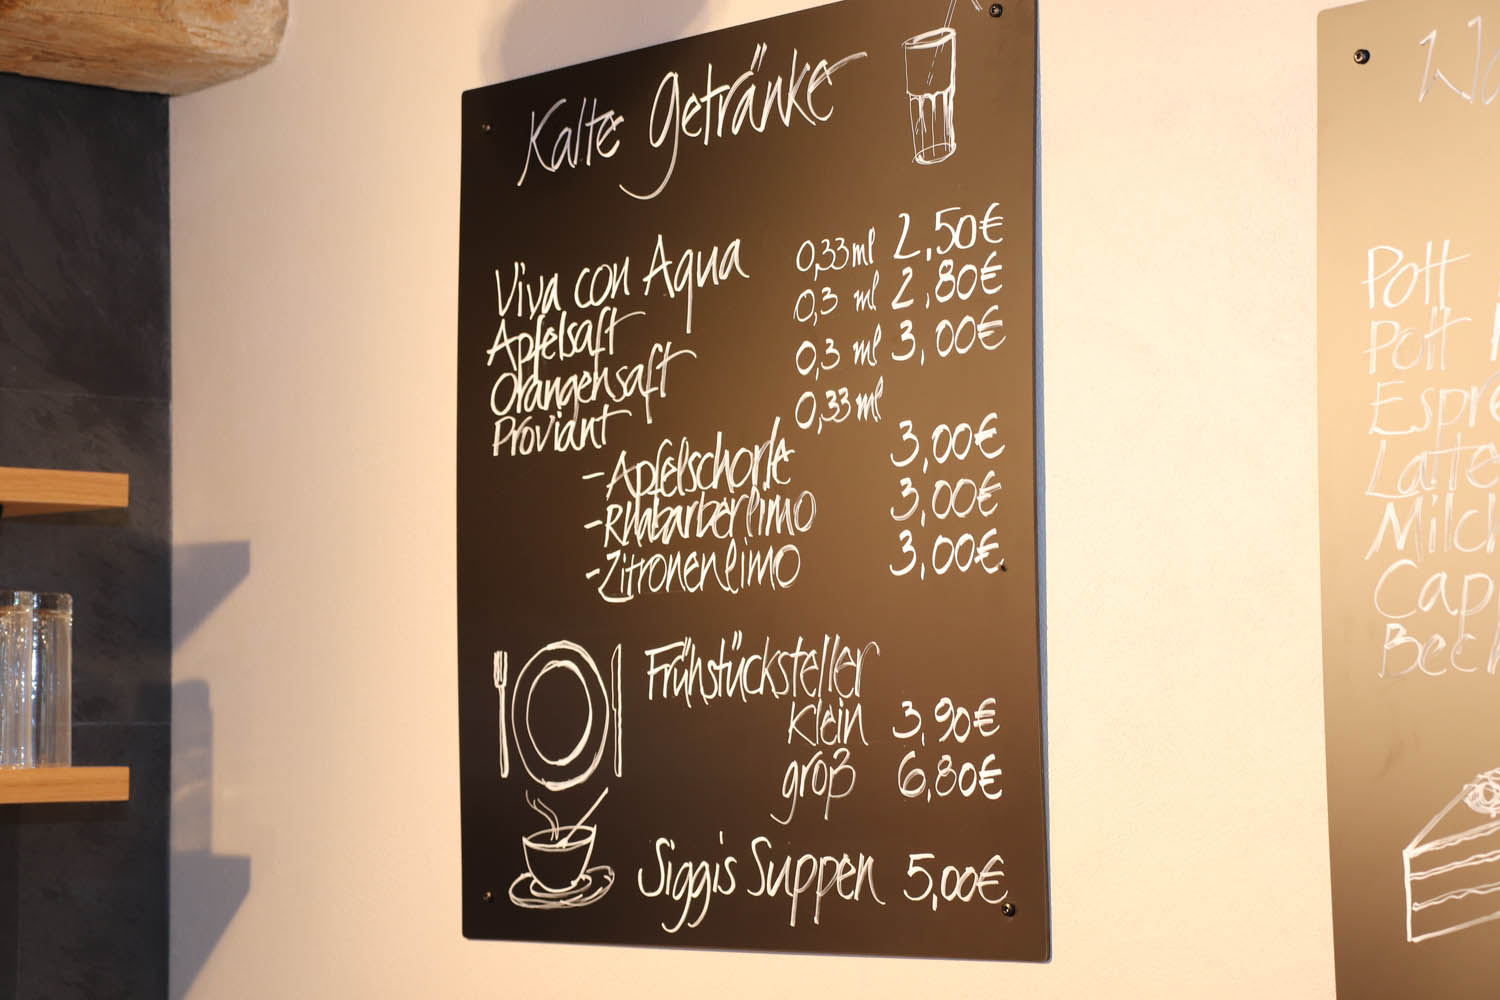 Kalte Getränke
Viva con Aqua 0,33 ml 2,50€
Apfelsaft 0,3 ml 2,80€
Orangensaft 0,3 ml 3,00€
Proviant 0,33 ml
- Apfelschorle 3,00€
- Rhabarberlimo 3,00€
- Zitronenlimo 3,00€
Frühstücksteller
Klein 3,90€
groß 6,80€
Siggis Suppen 5,00€
Pott
Pott